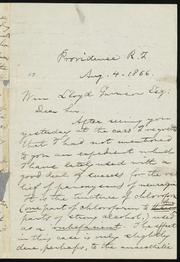 Providence R.I.
Aug. 4. 1866.
Wm Lloyd Garrison Esq:
Dear Sir
After seeing you
yesterday at the cars I regretted
that I had not mentioned
to you an expedient which
I have often used with a
good deal of success for the re-
lief of paroxysms of neuralgia.
It is the tincture of chloroform
(one part of chloroform to
parts of strong alcohol,) used
as a The effect
in this case is most
due, perhaps, to the anaesthetic